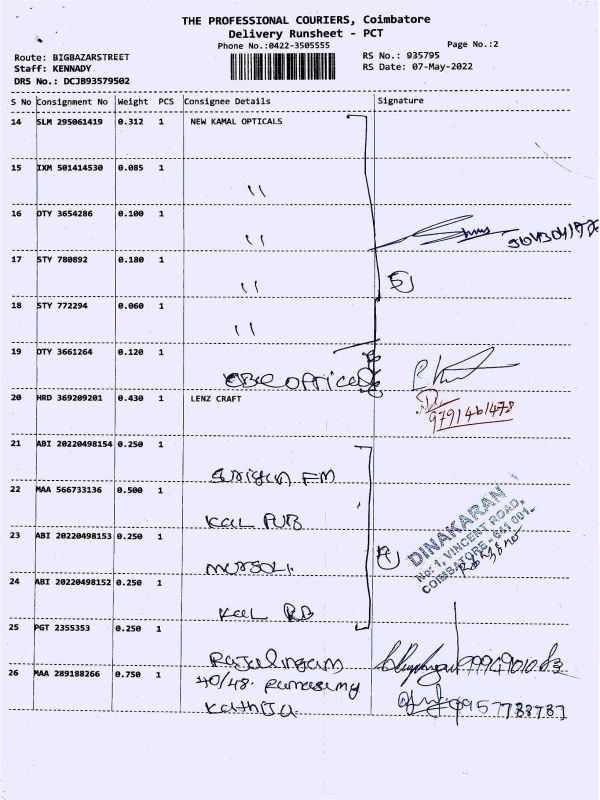 THE PROFESSIONAL COURIERS, Coimbatore
Delivery Runsheet - PCT
Phone No.:0422-3505555
Page No.:2
Route: BIGBAZARSTREET
RS No.: 935795
Staff: KENNADY
RS Date: 07-May-2022
DRS No.: DCJB93579502
S No Consignment No Weight PCS Consignee Details Signature
14 SLM 295061419 0.312 1 NEW KAMAL OPTICALS
15 IXM 501414530 0.085 1
"
16 OTY 3654286 0.100 1
"
17 STY 780892 0.180 1
5
"
18 STY 772294 0.060 1
"
19 OTY 3661264 0.120 1
20 HRD 369209201 0.430 1 LENZ CRAFT
9791461478
21 ABI 20220498154 0.250 1
FM
22 MAA 566733136 0.500 1
Kal PUB
23 ABI 20220498153 0.250 1
4
DINAKARAN
No: 1, VINCENT ROAD,
COIMBATORE - 641 001.
24 ABI 20220498152 0.250 1
Kal RB
25 PGT 2355353 0.250 1
Rajalingam
26 MAA 289188266 0.750 1
40/48.
Kathija